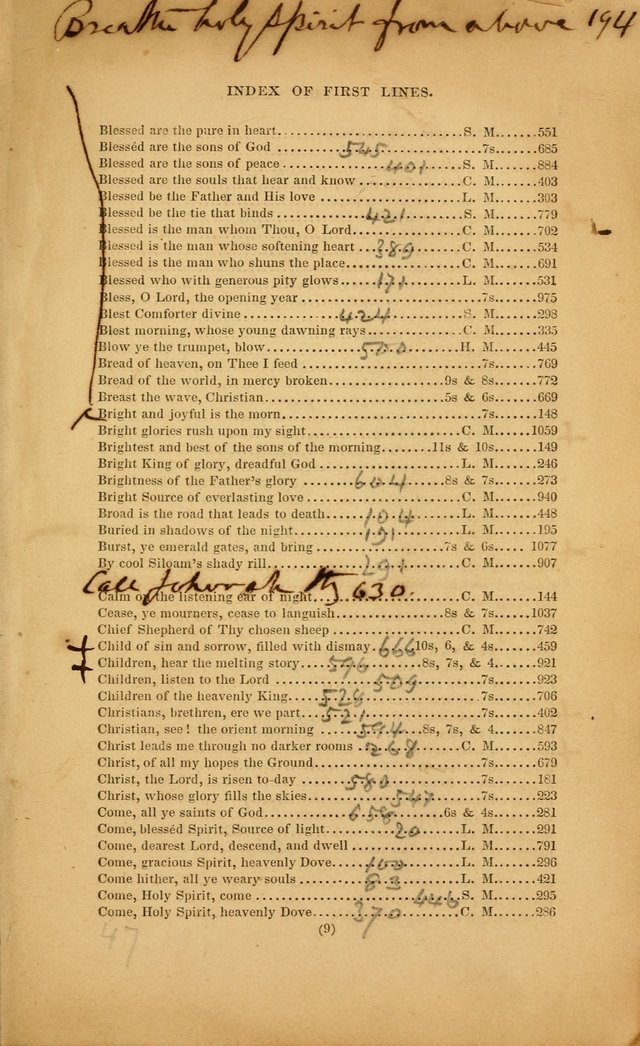 Breathe holy spirit from above 194
INDEX OF FIRST LINES.
Blessed are the pure in heart..............................S. M.......551
Blesséd are the sons of God ..........545..................7s.......685
Blessed are the sons of peace ................401........S. M.......884
Blessed are the souls that hear and know ................C. M.......403
Blessed be the Father and His love ......................L. M.......303
Blessed be the tie that binds ............421............S. M.......779
Blessed is the man whom Thou, O Lord..................C. M.......702
Blessed is the man whose softening heart ...389........C. M.......534
Blessed is the man who shuns the place................C. M.......691
Blessed who with generous pity glows.....171..........L. M.......531
Bless, O Lord, the opening year ..........................7s.......975
Blest Comforter divine ..............424................S. M.......298
Blest morning, whose young dawning rays..............C. M.......335
Blow ye the trumpet, blow..............500............H. M.......445
Bread of heaven, on Thee I feed ..........................7s.......769
Bread of the world, in mercy broken................9s & 8s.......772
Breast the wave, Christian..........................5s & 6s.......669
Bright and joyful is the morn..............................7s.......148
Bright glories rush upon my sight......................C. M.......1059
Brightest and best of the sons of the morning.......11s & 10s.......149
Bright King of glory, dreadful God ......................L. M.......246
Brightness of the Father's glory ........604......8s & 7s.......273
Bright Source of everlasting love ......................C. M.......940
Broad is the road that leads to death......104........L. M.......448
Buried in shadows of the night............191..........L. M.......195
Burst, ye emerald gates, and bring ................7s & 6s..... 1077
By cool Siloam's shady rill..............291..........C. M.......907
Call Jehovah thy 630.
Calm on the listening ear of night......................C. M.......144
Cease, ye mourners, cease to languish..............8s & 7s.......1037
Chief Shepherd of Thy chosen sheep ..................C. M.......742
Child of sin and sorrow, filled with dismay.666.10s, 6, & 4s.......459
Children, hear the melting story......596......8s, 7s, & 4.......921
Children, listen to the Lord ................509..........7s.......923
Children of the heavenly King......528..................7s.......706
Christians, brethren, ere we part....521................7s.......402
Christian, see! the orient morning ......594...8s, 7s, & 4.......847
Christ leads me through no darker rooms .268........C. M.......593
Christ, of all my hopes the Ground......................7s.......679
Christ, the Lord, is risen to-day ......580..............7s.......181
Christ, whose glory fills the skies..........547..........7s.......223
Come, all ye saints of God............658........6s & 4s.......281
Come, blesséd Spirit, Source of light........20........L. M.......291
Come, dearest Lord, descend, and dwell ..............L. M.......791
Come, gracious Spirit, heavenly Dove....100..........L. M.......296
Come hither, all ye weary souls ........83............L. M.......421
Come, Holy Spirit, come ....................446....S. M.......295
Come, Holy Spirit, heavenly Dove......370..........C. M.......286
(9)
47